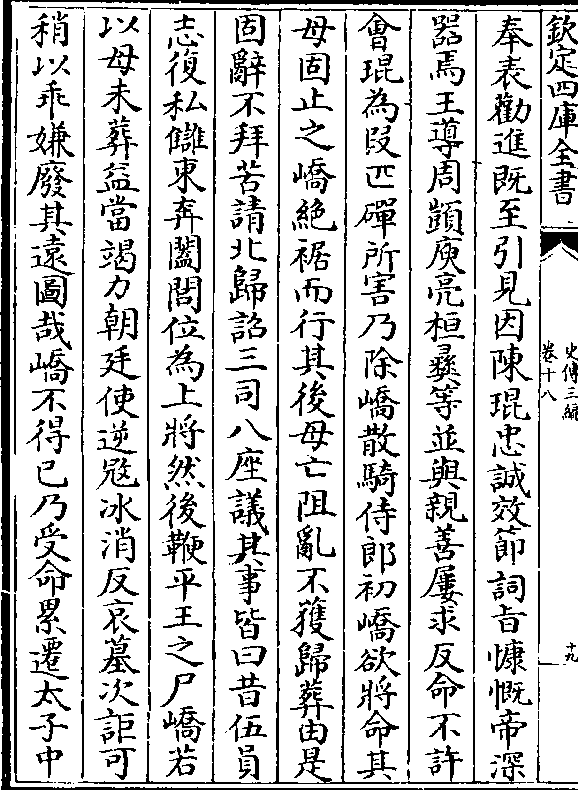 欽定四庫全書
史傳三編
卷十八
十九
奉表勸進既至引見因陳琨忠誠效節詞旨慷慨帝深
器焉王導周顗庾亮桓彞等並與親善屢求反命不許
會琨為段匹磾所害乃除嶠散騎侍郎初嶠欲將命其
母固止之嶠絶裾而行其後母亡阻亂不獲歸葬由是
固辭不拜苦請北歸詔三司八座議其事皆曰昔伍員
志復私讐東奔闔閭位為上將然後鞭平王之尸嶠若
以母未葬益當竭力朝廷使逆冦冰消反哀墓次詎可
稍以乖嫌廢其遠圖哉嶠不得已乃受命累遷太子中